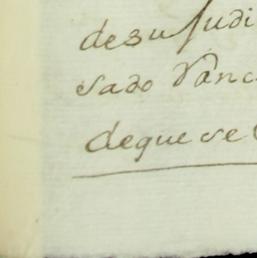 desu Judi
sado Vanc
deque se